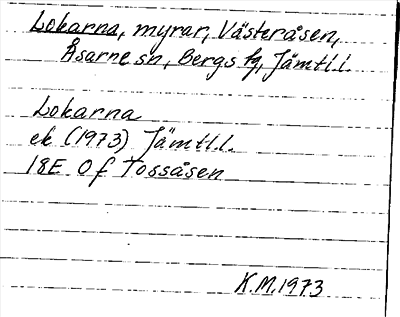 Lokarna, myrar, Västeråsen,
Åsarne sn, Bergs tg, Jämtl.l
Lokarna
ek (1973) Jämtl.l.
18E 0f Tossåsen
K.M.1973